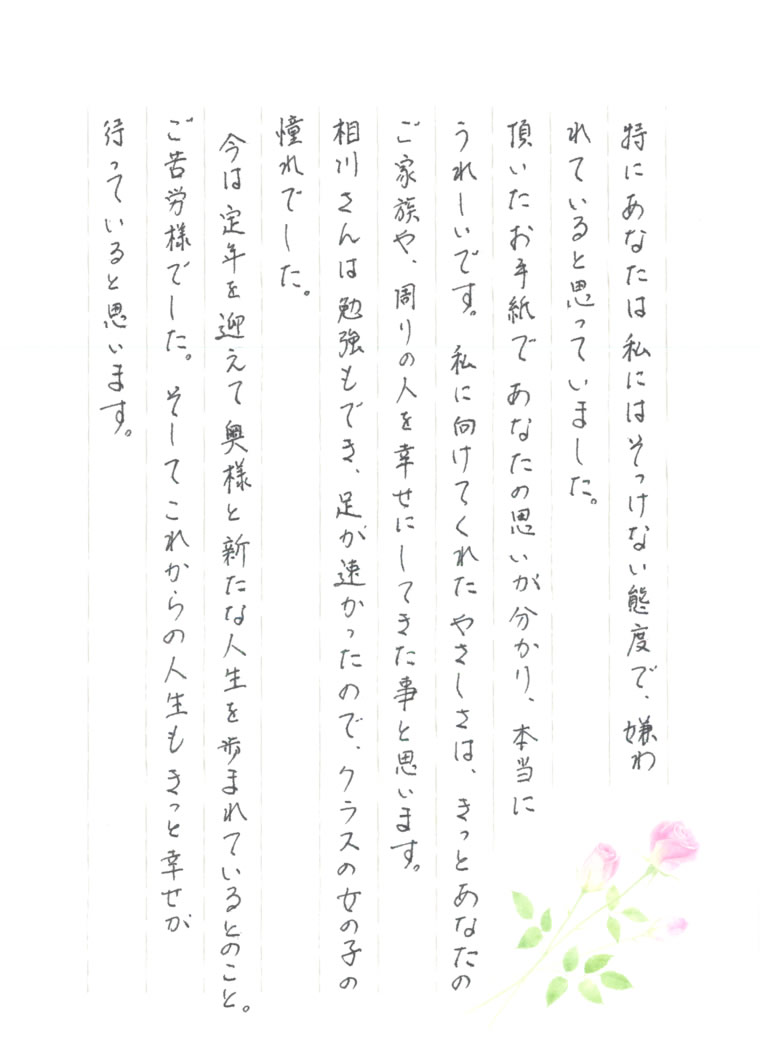 特にあなたは私にはそっけない態度で、嫌わ
れていると思っていました。
頂いたお手紙であなたの思いが分かり、本当に
うれしいです。私に向けてくれたやさしさは、きっとあなたの
ご家族や、周りの人を幸せにしてきた事と思います。
相川さんは勉強もでき、足が速かったので、クラスの女の子の
憧れでした。
今は定年を迎えて奥様と新たな人生を歩まれているとのこと。
ご苦労様でした。そしてこれからの人生もきっと幸せが
待っていると思います。